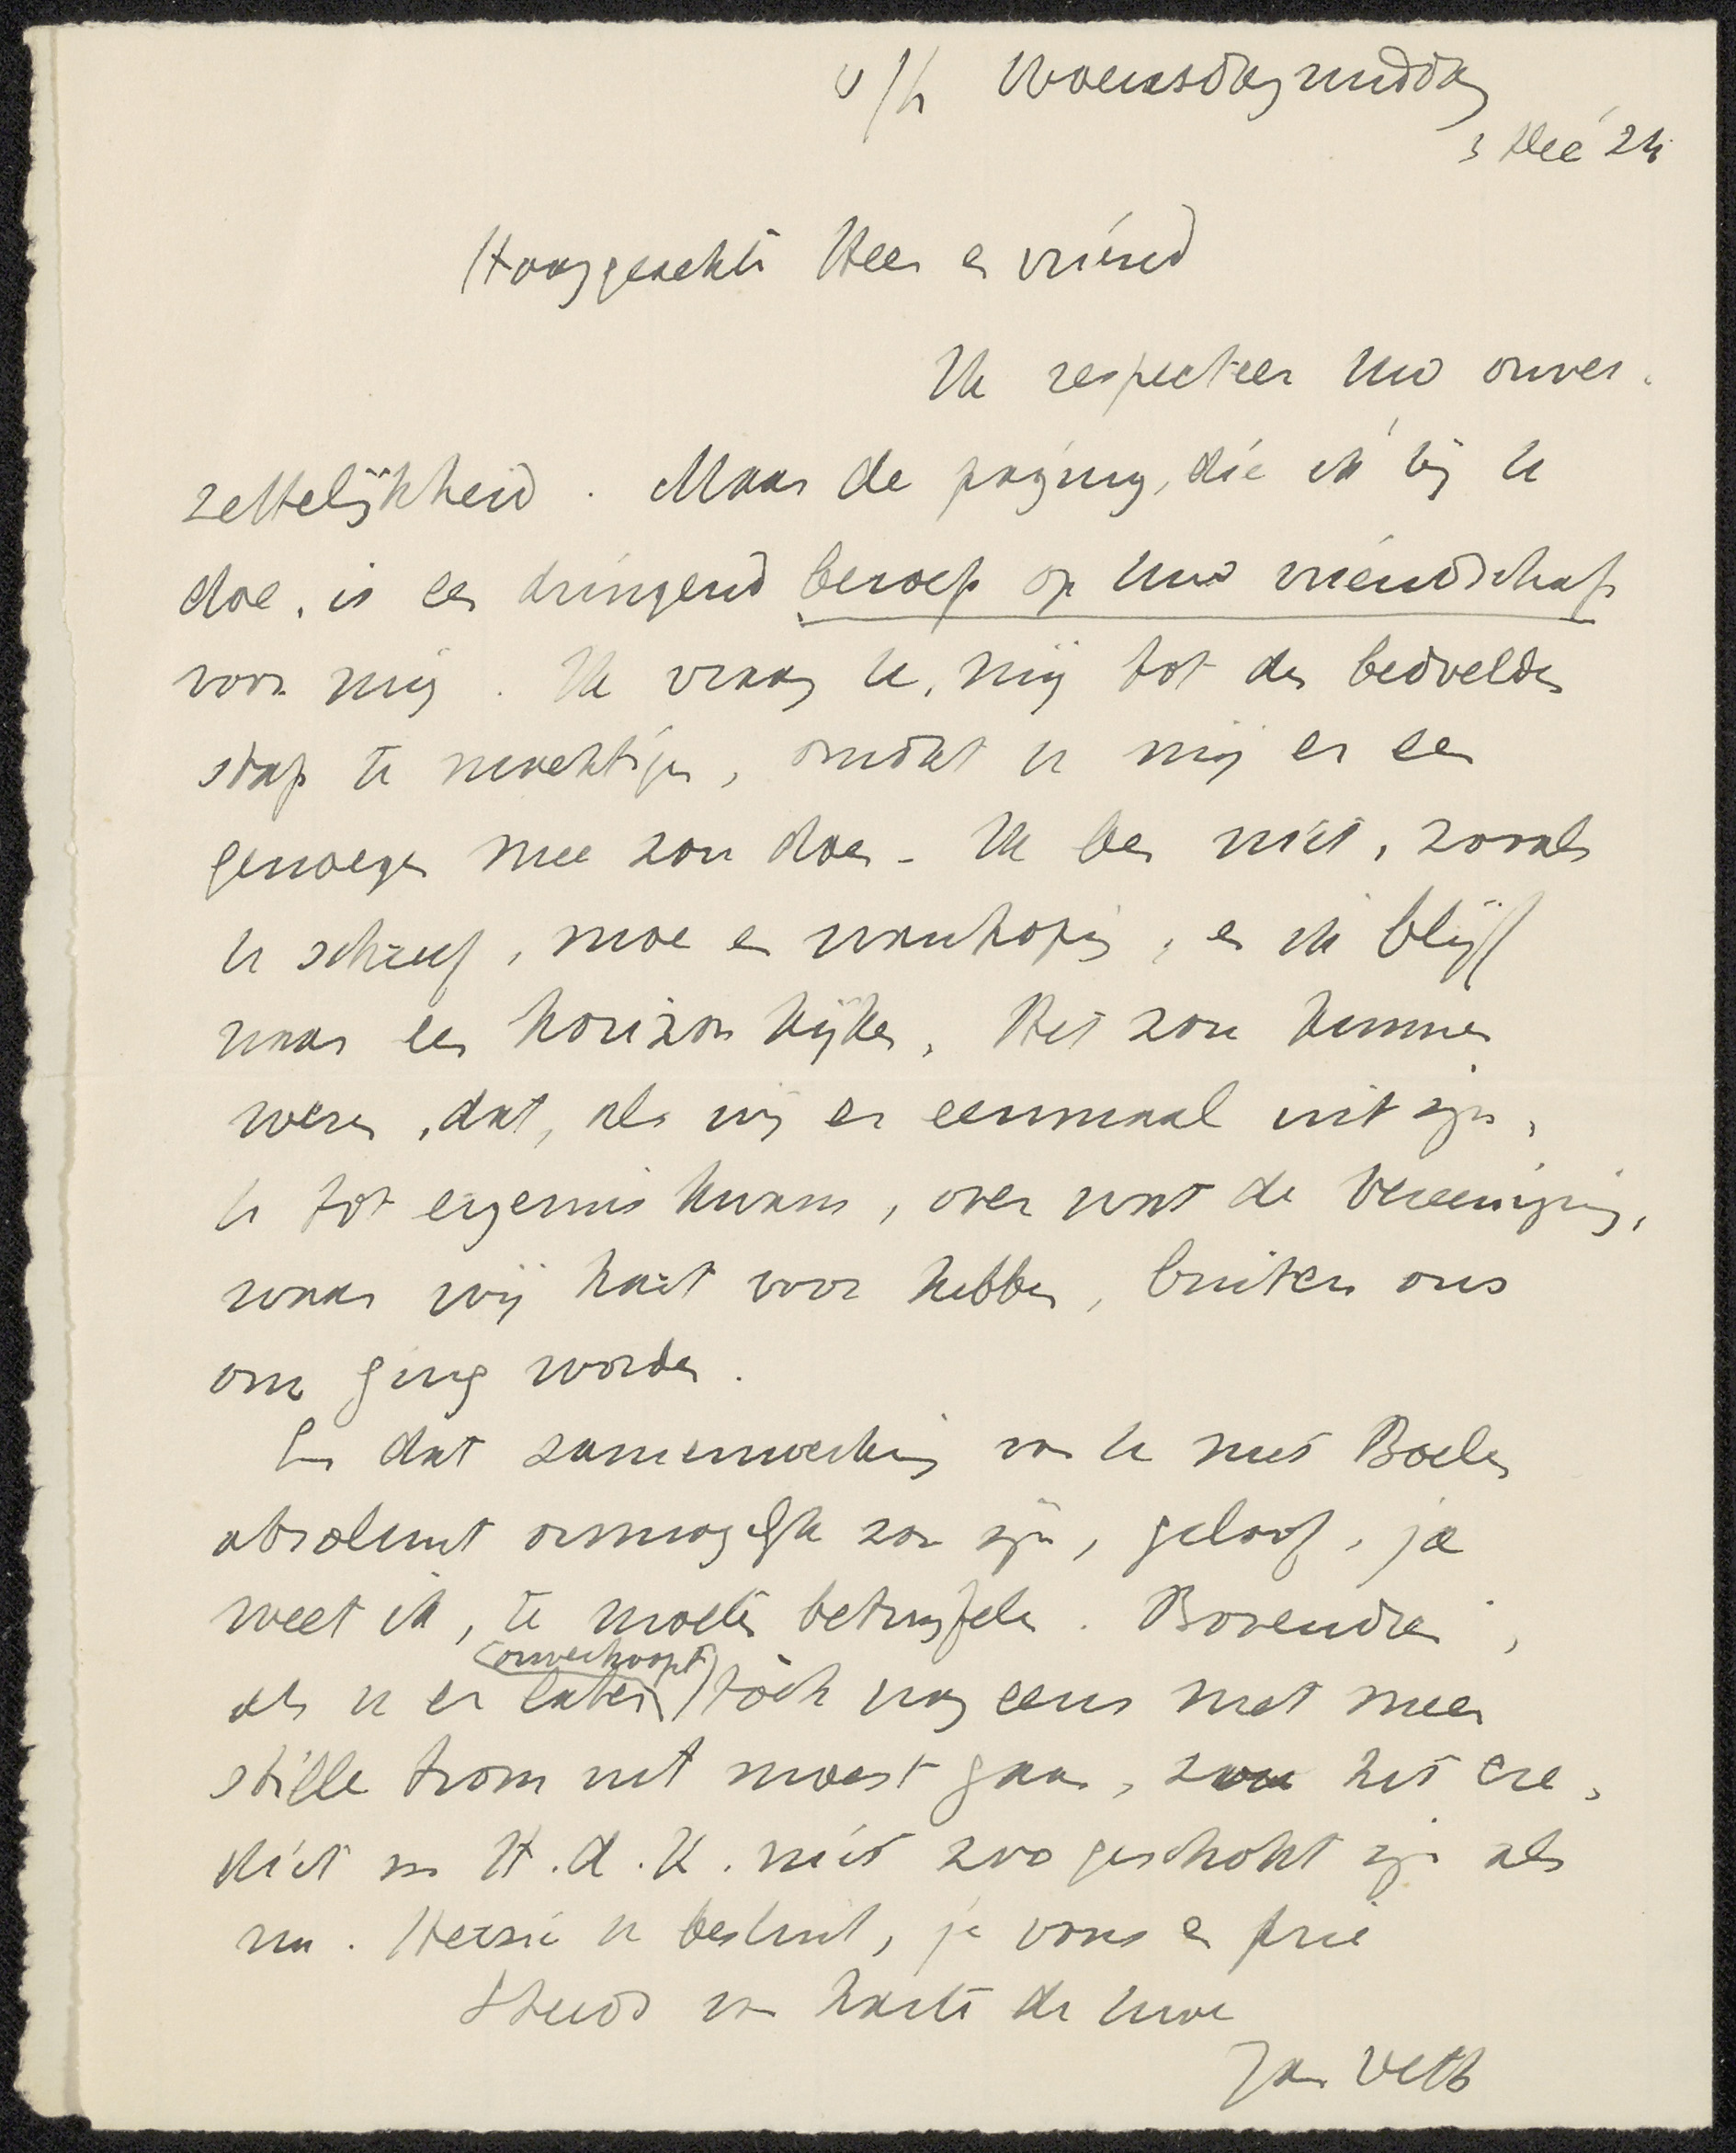 Woensdagmiddag
3 Dec '24
Hooggeachte Heer en vriend
Ik respecteer Uw onver-
zettelijkheid. Maar de poging, die ik bij U
doe, is een dringend beroep op Uw vriendschap
voor mij. Ik vraag U, mij tot den bedoelden
stap te machtigen, omdat U mij er een
genoegen mee zou doen. Ik ben niet, zooals
U schreef, moe en wanhopig, en ik blijf
naar een horizon kijken. Het zou kunnen
wezen, dat, als wij er eenmaal uit zijn,
U tot ergernis kwam, over wat de Vereeniging,
waar wij hart voor hebben, buiten ons
om ging worden.
En dat samenwerking van U met Boelen
absoluut onmogelijk zou zijn, geloof, ja
weet ik, te moeten betwijfelen. Bovendien,
als U er later (onverhoopt) tòch nog eens met meer
stille trom uit moest gaan, zou het cre-
diet v. H.d.K. niet zoo geschokt zijn als
nu. Herzie Uw besluit, je vous en prie
Steeds van harte de Uwe
Jan Veth